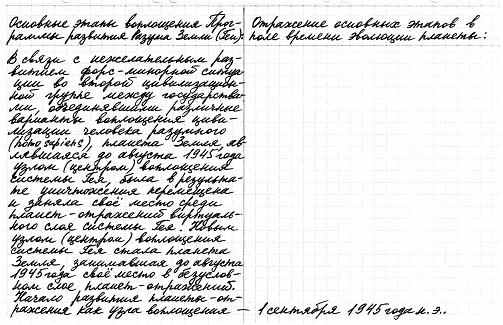 Основные этапы воплощения Прог-
раммы развития Разума Земли (Геи):
Отражение основных этапов в
поле времени эволюции планеты:
В связи с нежелательным раз-
витием форс-минорной ситуа-
ции во второй цивилизацион-
ной группе между государства-
ми, объединявшими различные
варианты воплощения циви-
лизации человека разумного
(homo sapiens), планета Земля, яв-
лявшаяся до августа 1945 года
узлом (центром) воплощения
системы Гея, была в результа-
те уничтожения перемещена
и заняла своё место среди
планет-отражений виртуаль-
ного слоя системы Гея. Новым
узлом (центром) воплощения
системы Гея стала планета
Земля, занимавшая до августа
1945 года своё место в безуслов-
ном слое планет-отражений.
Начало развития планеты-от-
ражения как узла воплощения — 1 сентября 1945 года н.э..